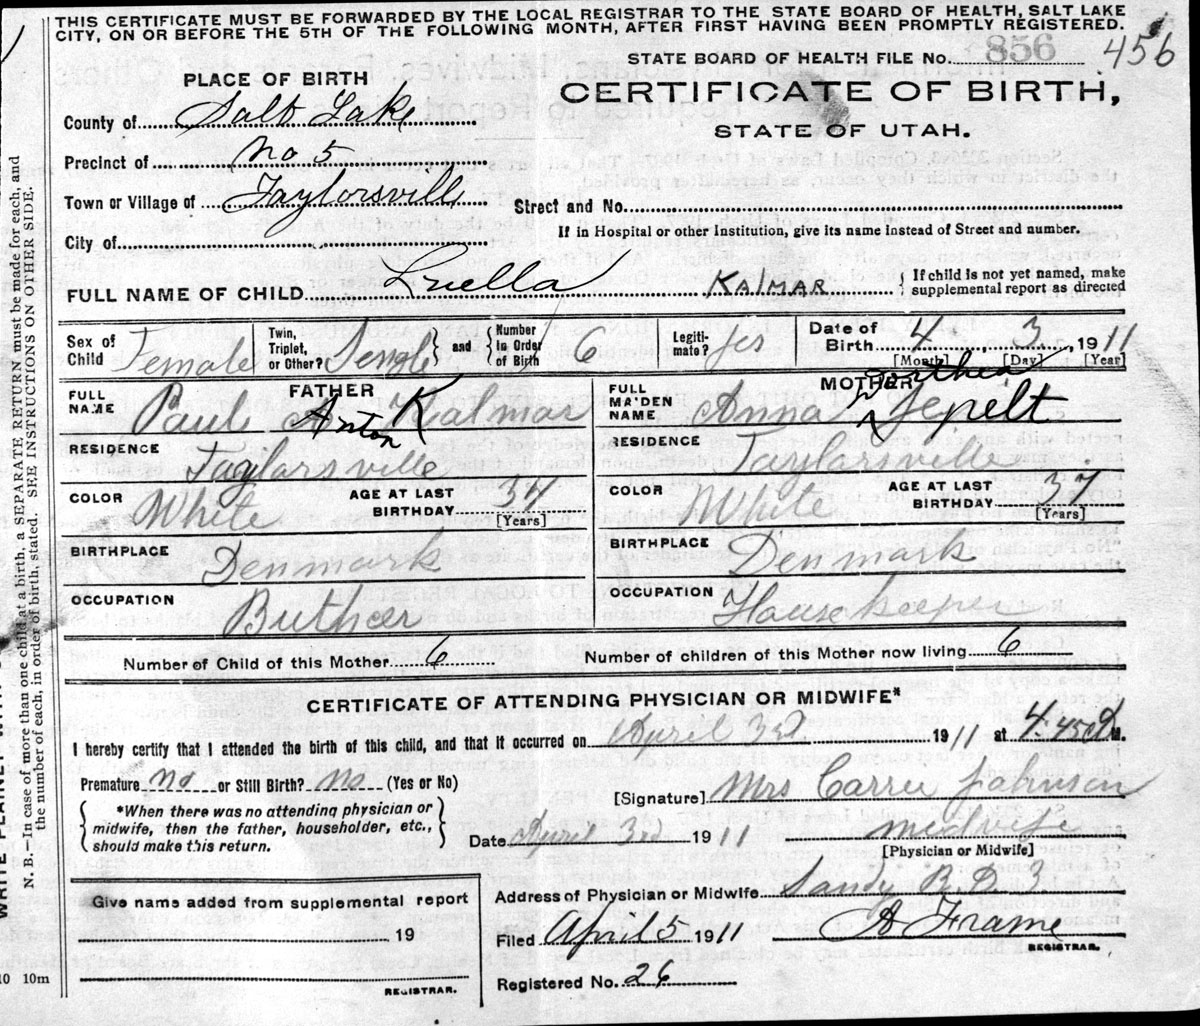 THIS CERTIFICATE MUST BE FORWARDED BY THE LOCAL REGISTRAR TO THE STATE BOARD OF HEALTH, SALT LAKE
CITY, ON OR BEFORE THE 5TH OF THE FOLLOWING MONTH, AFTER FIRST HAVING BEEN PROMPTLY REGISTERED.
STATE BOARD OF HEALTH FILE No. 856 456
PLACE OF BIRTH
CERTIFICATE OF BIRTH,
STATE OF UTAH.
County of Salt Lake
Precinct of No 5
Town or Village of Taylorsville
Street and No.
City of
If in Hospital or other Institution, give its name instead of Street and number.
FULL NAME OF CHILD Luella KALMAR { If child is not yet named, make
supplemental report as directed
Sex of Child Female
Twin, Triplet, or Other? Single } and { Number in Order of Birth 6
Legiti-mate? yes
Date of Birth 4, 3, 1911
[Month] [Day] [Year]
FATHER
FULL NAME Paul Anton Kalmar
MOTHER
FULL MAIDEN NAME Anna Dorthea Jepelt
RESIDENCE Taylarsville
RESIDENCE Taylarsville
COLOR White AGE AT LAST BIRTHDAY 34 [Years]
COLOR White AGE AT LAST BIRTHDAY 37 [Years]
BIRTHPLACE Denmark
BIRTHPLACE Denmark
OCCUPATION Buthcer
OCCUPATION House keeper
Number of Child of this Mother 6 Number of children of this Mother now living 6
CERTIFICATE OF ATTENDING PHYSICIAN OR MIDWIFE*
I hereby certify that I attended the birth of this child, and that it occurred on April 3rd 1911 at 4:45 M.
Premature no or Still Birth? no (Yes or No)
[Signature] Mrs Carrie Johnson
{ *When there was no attending physician or
midwife, then the father, householder, etc.,
should make this return. }
Date April 3rd 1911 midwife
[Physician or Midwife]
Give name added from supplemental report
19
REGISTRAR.
Address of Physician or Midwife Sandy R. D. 3
Filed April 5 1911 A Frame
REGISTRAR.
Registered No. 26
N. B.—In case of more than one child at a birth, a SEPARATE RETURN must be made for each, and
the number of each, in order of birth, stated. SEE INSTRUCTIONS ON OTHER SIDE.
WRITE PLAINLY WITH
10 10m